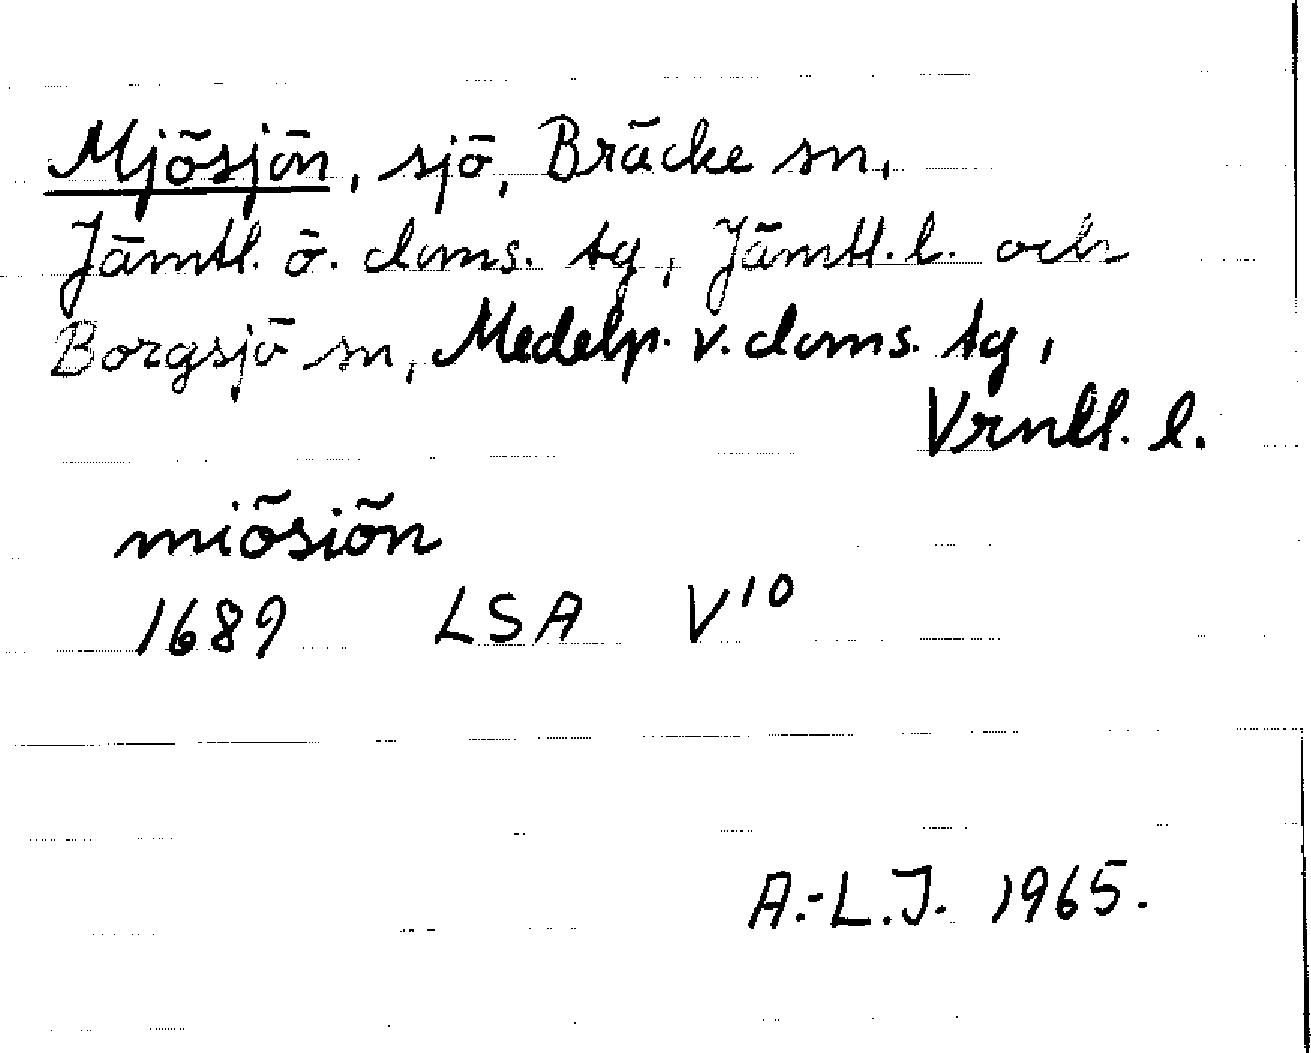 Mjösjön, sjö, Bräcke sn,
Jämtl. ö. doms. tg, Jämtl. l. och
Borgsjö sn, Medelp. v. doms. tg,
Vrnll. l.
miösiön
1689 LSA V10
A.-L.J. 1965.